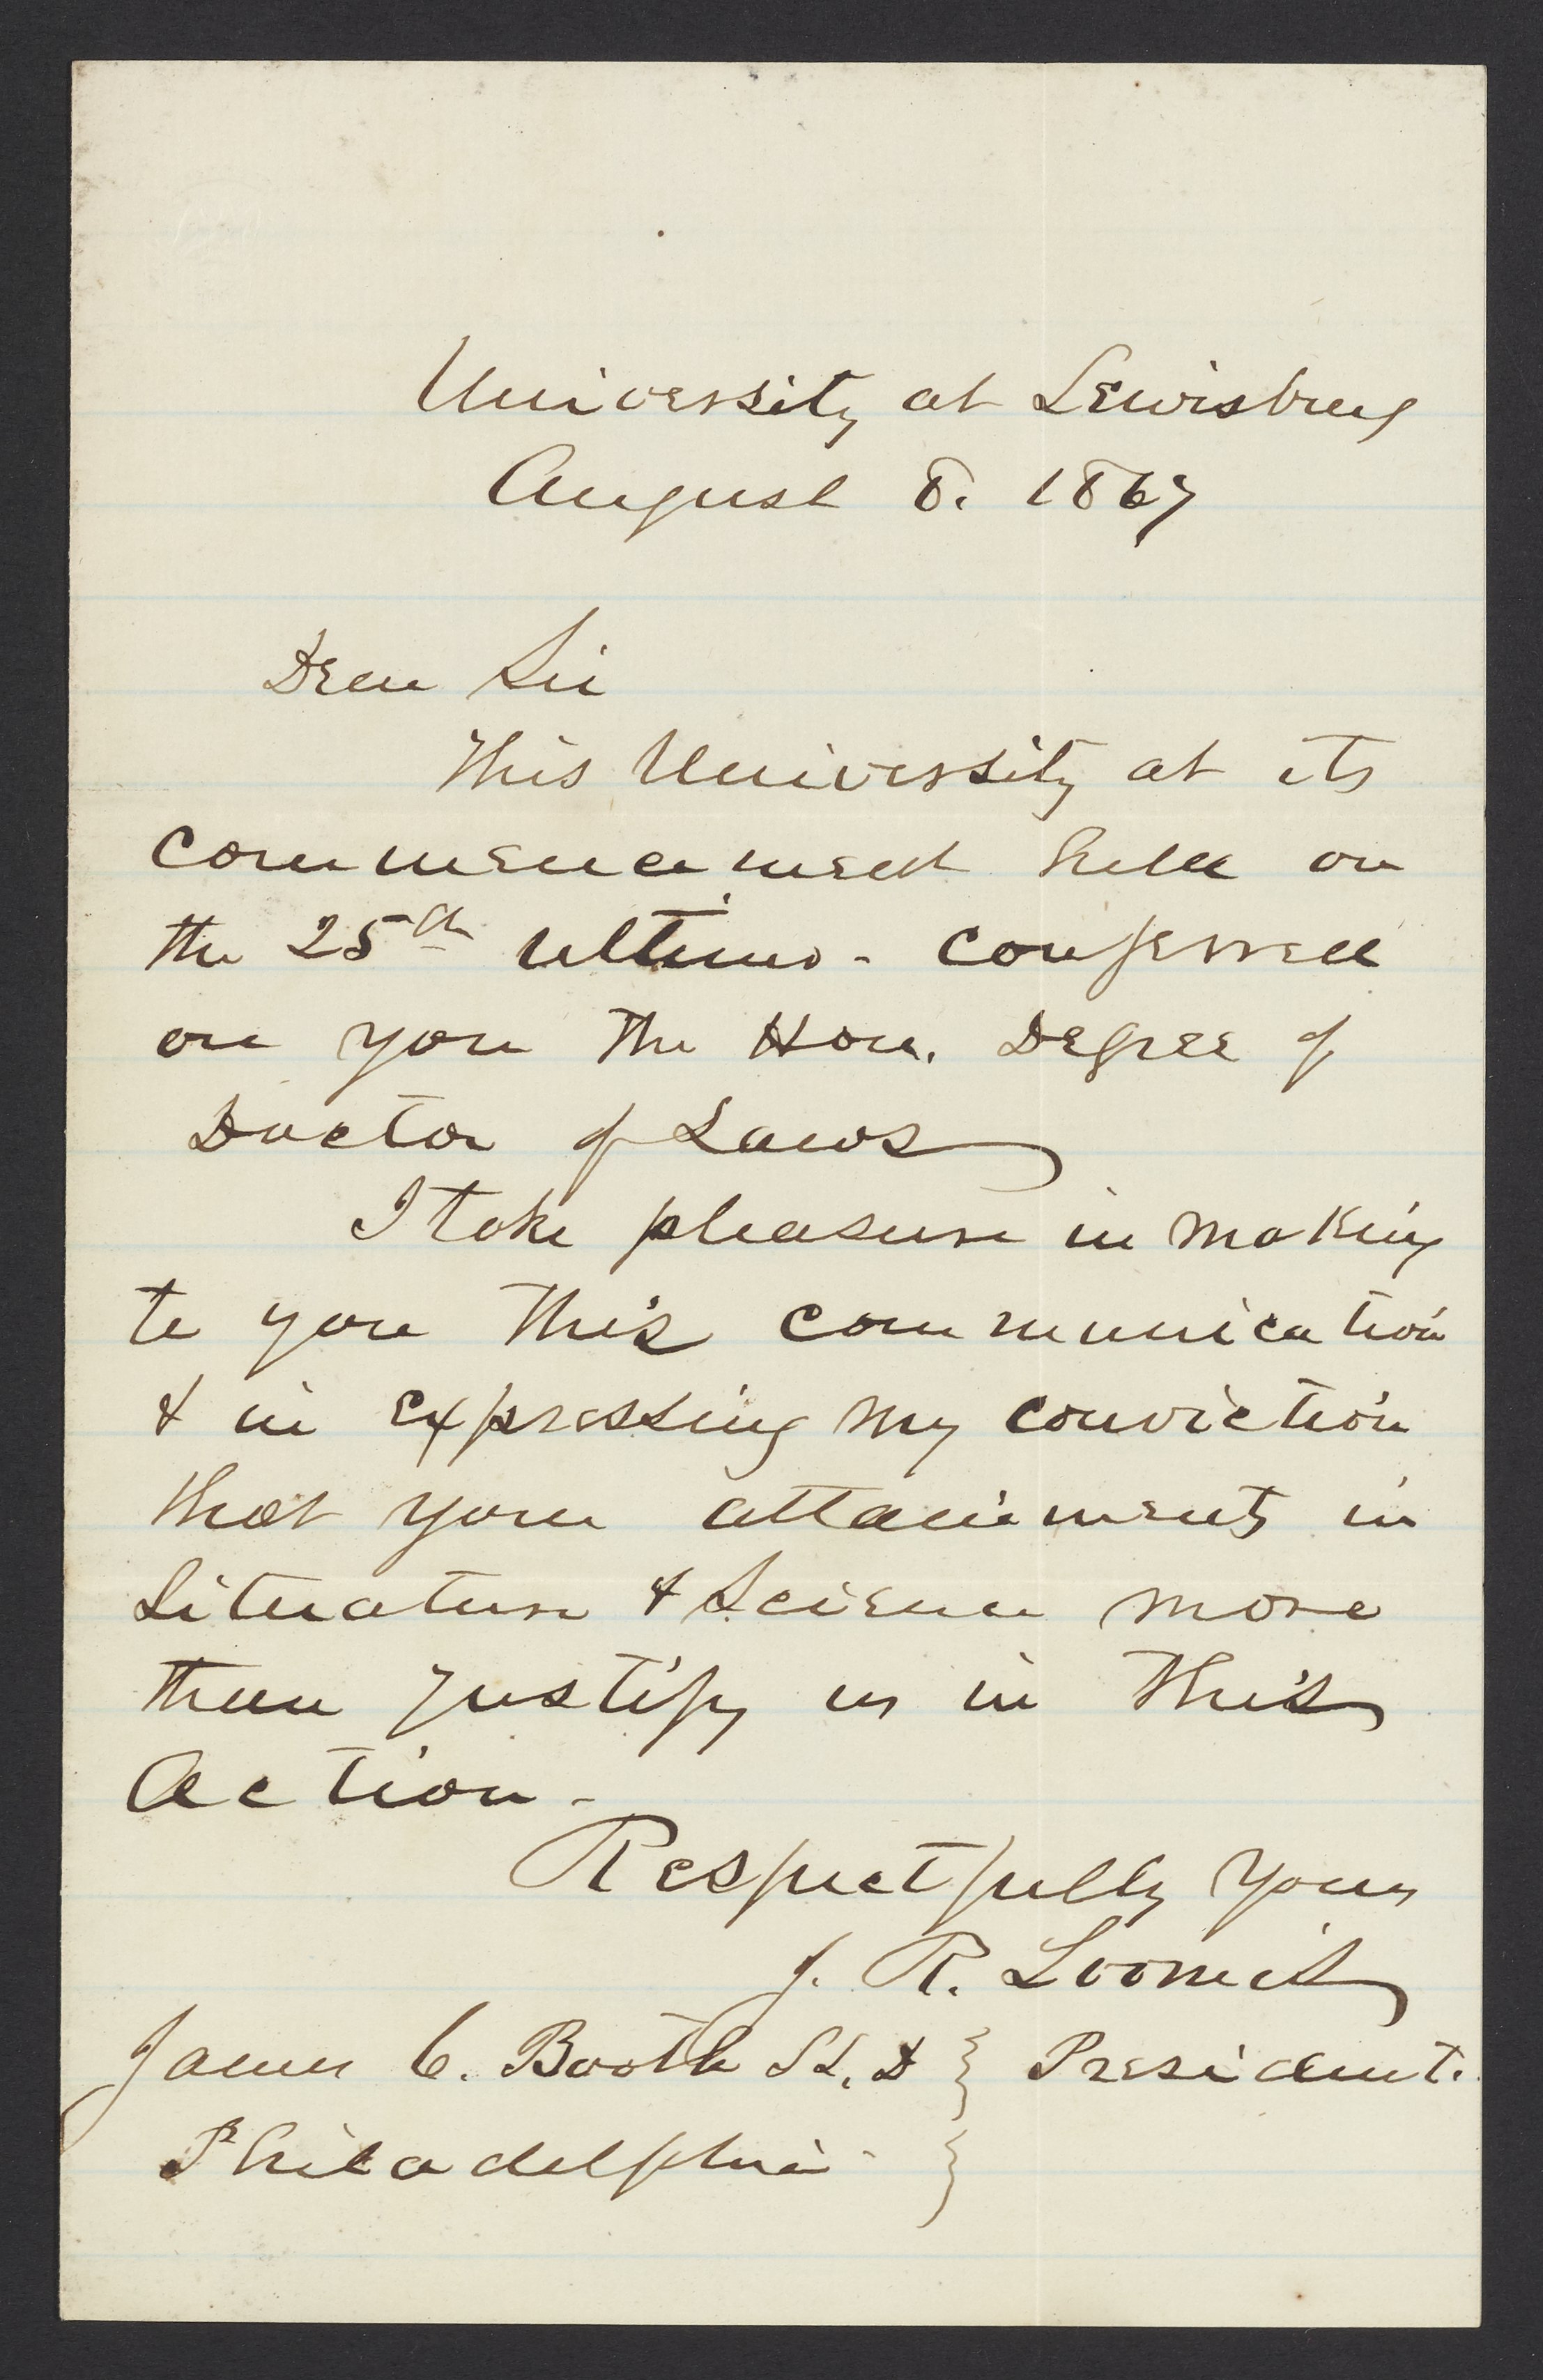 University at Lewisburg
August 8. 1867
Dear Sir
This University at its
commencement held on
the 25th ultimo - conferred
on you the Hon. Degree of
Doctor of Laws
I take pleasure in making
to you this communication
& in expressing my conviction
that your attainments in
Literature & Science more
than justify us in this
action -
Respectfully Yours
J. R. Loomis
James C. Booth LL. D } President.
Philadelphia - }